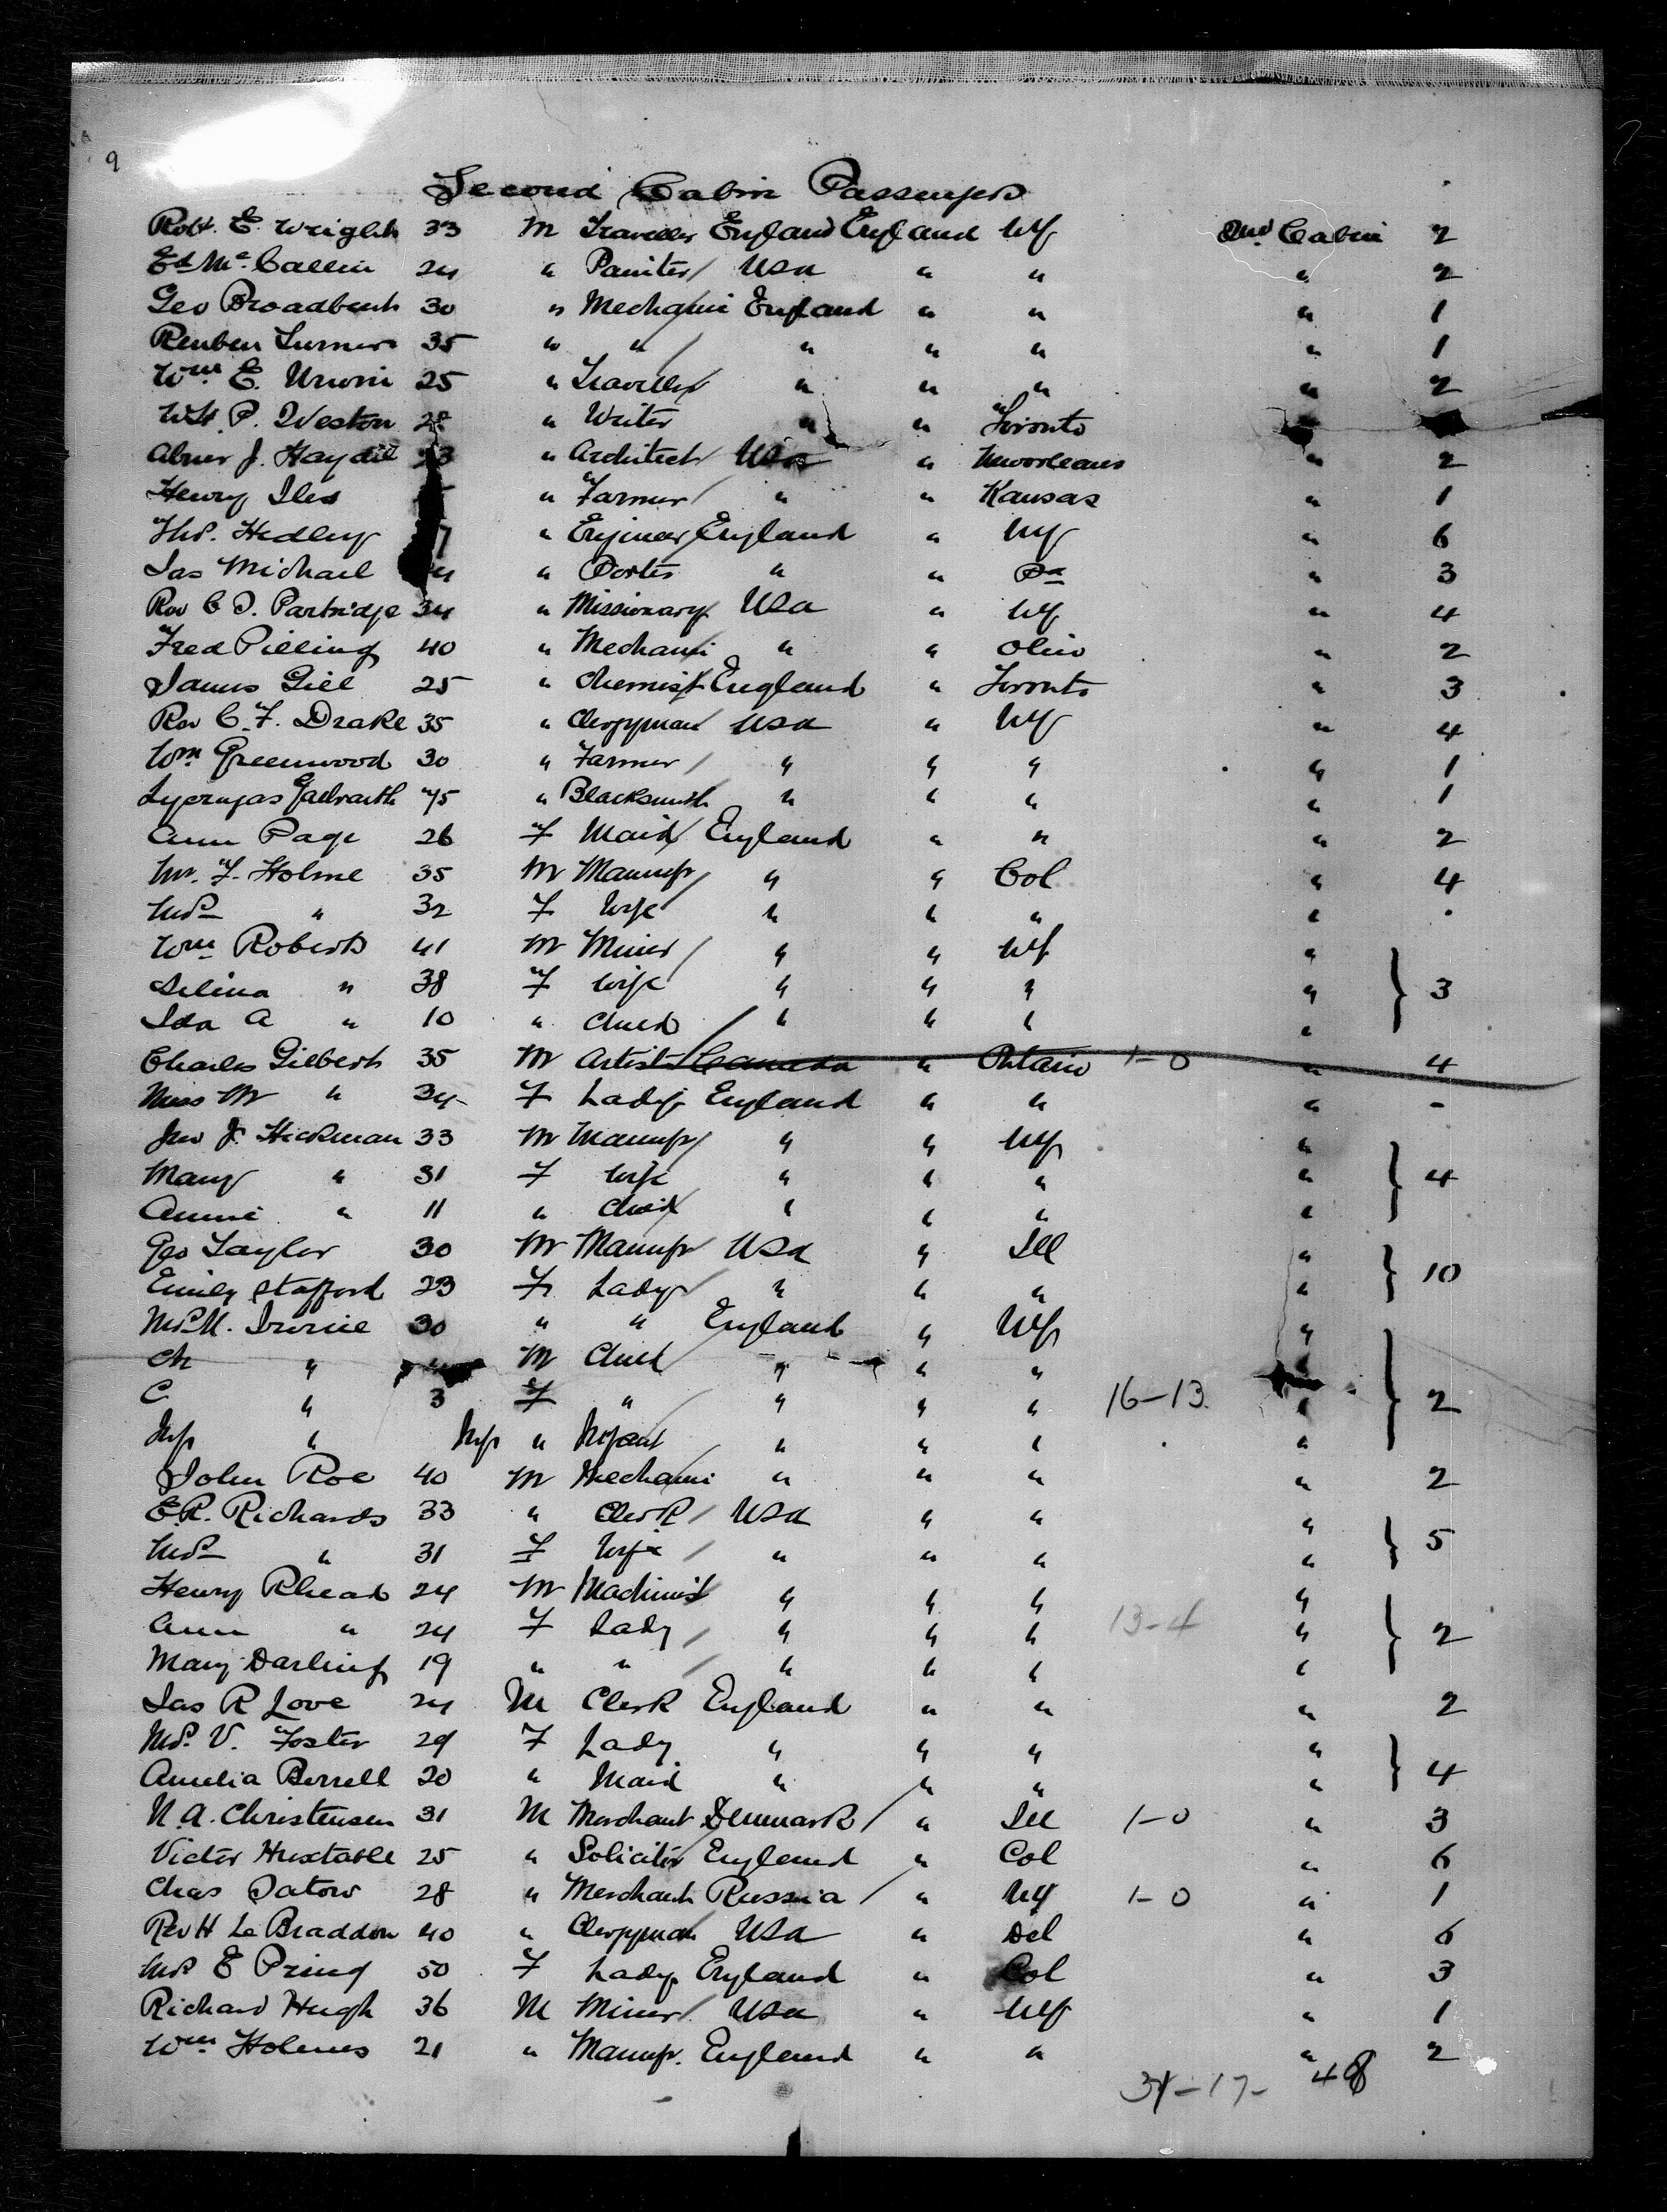 9
Second Cabin Passengers
Robt. E. Wright 33 M Traveller England England NY 2nd Cabin 2
Ed Mc. Callin 24 " Painter USA " " " 2
Geo Broadbent 30 " Mechani England " " " 1
Reuben Turner 35 " " " " " " 1
Wm. E. Unwin 25 " Traveller " " " " 2
P. Weston 28 " Writer " " Toronto
Abner J. 3 " Architect USA " Neworleans " 2
Henry Iles " Farmer " " Kansas " 1
Thos. Hedley 7 " Engineer England " NY " 6
Jas Michael 4 " Porter " " Pa " 3
Rev C D. Partridge 34 " Missionary USA " NY " 4
Fred Pilling 40 " Mechani " " Ohio " 2
James Gill 25 " Chemist England " Toronto " 3
Rev C. F. Drake 35 " Clergyman USA " NY " 4
Wm Greenwood 30 " Farmer " " " " 1
Galbraith 45 " Blacksmith " " " " 1
Ann Page 26 F Maid England " " " 2
Mr. F. Holme 35 M Manufr " " Col " 4
Mrs " 32 F Wife " " " "
Wm Roberts 41 M Miner " " NY "
Selina " 38 F Wife " " " " 3
Ida A " 10 " Child " " " "
Charles Gilbert 35 M Artist Canada " Ontario 1-0 " 4
Miss M " 34 F Lady England " " " -
Jno J. Hickman 33 M Manufr " " NY "
Mary " 31 F Wife " " " " 4
Annie " 11 " Child " " " "
Geo Taylor 30 M Manufr USA " Ill "
Emily Stafford 23 F Lady " " " " 10
Mrs. M. Irvine 30 " " England " NY "
Ch " M Child " " " "
C " 3 F " " " " 16-13 " 2
Inf " Inf " Infant " " " "
John Roe 40 M Mechani " " " " 2
E.R. Richards 33 " Clerk USA " " "
Mrs " 31 F Wife " " " " 5
Henry Rhead 24 M Machinist " " " "
Ann " 24 F Lady " " " 13-4 " 2
Mary Darling 19 " " " " " "
Jas R Love 24 M Clerk England " " " 2
Mrs. V. Foster 29 F Lady " " " "
Amelia Berrell 20 " Maid " " " " 4
N. A. Christensen 31 M Merchant Denmark " Ill 1-0 " 3
Victor Huxtable 25 " Solicitor England " Col " 6
Chas Satow 28 " Merchant Russia " NY 1-0 " 1
Rev H Le Braddon 40 " Clergyman USA " Del " 6
Mrs E Pring 50 F Lady England " Col " 3
Richard Hugh 36 M Miner USA " NY " 1
Wm. Holmes 21 " Manufr. England " " " 2
31-17- 48